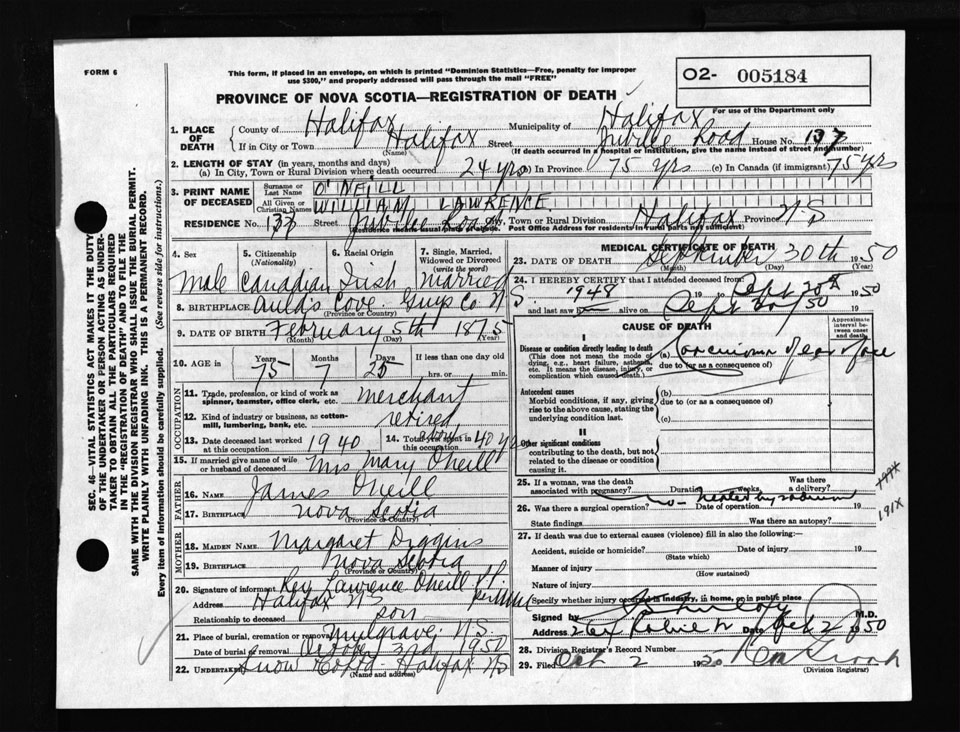 FORM 6
This form, if placed in an envelope, on which is printed "Dominion Statistics—Free, penalty for improper
use $300," and properly addressed will pass through the mail "FREE"
O2- 005184
PROVINCE OF NOVA SCOTIA—REGISTRATION OF DEATH
For use of the Department only
1. PLACE OF DEATH
County of Halifax Municipality of Halifax
If in City or Town Halifax Street Jubilee Road House No. 137
(Name) (If death occurred in a hospital or institution, give the name instead of street and number)
2. LENGTH OF STAY (in years, months and days)
(a) In City, Town or Rural Division where death occurred 24 yrs (b) In Province 75 yrs (c) In Canada (if immigrant) 75 yrs
3. PRINT NAME OF DECEASED
Surname or Last Name O'NEILL
All Given or Christian Names WILLIAM LAWRENCE
RESIDENCE No. 137 Street Jubilee Road City, Town or Rural Division Halifax Province N.S
(Residence means usual place of abode. Post Office Address for residents in rural parts not sufficient)
4. Sex 5. Citizenship (Nationality) 6. Racial Origin 7. Single, Married, Widowed or Divorced (write the word)
Male Canadian Irish Married
8. BIRTHPLACE Auld's Cove. Guys Co N.S.
(Province or Country)
9. DATE OF BIRTH February 5th 1875
(Month) (Day) (Year)
10. AGE in Years 75 Months 7 Days 25 If less than one day old hrs. or min.
OCCUPATION
11. Trade, profession, or kind of work as spinner, teamster, office clerk, etc. merchant
12. Kind of industry or business, as cotton-mill, lumbering, bank, etc. retired
13. Date deceased last worked at this occupation 1940 14. Total years spent in this occupation 40 yrs
15. If married give name of wife or husband of deceased Mrs Mary O'neill
FATHER
16. NAME James O'neill
17. BIRTHPLACE Nova Scotia
(Province or Country)
MOTHER
18. MAIDEN NAME Margaret Diggins
19. BIRTHPLACE Nova Scotia
(Province or Country)
20. Signature of informant Rev Lawrence O'neill P.P.
Address Halifax N.S
Relationship to deceased son
21. Place of burial, cremation or removal Mulgrave. N.S.
Date of burial or removal October 3rd 1950
22. Undertaker Snow Co Ltd - Halifax N.S
(Name and address)
MEDICAL CERTIFICATE OF DEATH
23. DATE OF DEATH September 30th 1950
(Month) (Day) (Year)
24. I HEREBY CERTIFY that I attended deceased from
1948 19 to Sept 30th 1950
and last saw him alive on Sept 30/50 19
CAUSE OF DEATH
Approximate interval between onset and death
I
Disease or condition directly leading to death
(This does not mean the mode of dying, e.g., heart failure, asthenia, etc. It means the disease, injury, or complication which caused death.)
(a) Carcinoma of ear & face
due to (or as a consequence of)
Antecedent causes
Morbid conditions, if any, giving rise to the above cause, stating the underlying condition last.
(b)
due to (or as a consequence of)
(c)
II
Other significant conditions
contributing to the death, but not related to the disease or condition causing it.
25. If a woman, was the death associated with pregnancy? Duration weeks Was there a delivery?
26. Was there a surgical operation? no - treated by radium Date of operation 19
State findings Was there an autopsy?
191X
27. If death was due to external causes (violence) fill in also the following:
Accident, suicide or homicide? Date of injury 19
(State which)
Manner of injury
(How sustained)
Nature of injury
Specify whether injury occurred in industry, in home, or in public place
Signed by M.D.
Address Date Oct 2 1950
28. Division Registrar's Record Number
29. Filed Oct 2 1950
(Division Registrar)
SEC. 46—VITAL STATISTICS ACT MAKES IT THE DUTY
OF THE UNDERTAKER OR PERSON ACTING AS UNDER-
TAKER TO OBTAIN ALL THE PARTICULARS REQUIRED
IN THE "REGISTRATION OF DEATH" AND TO FILE THE
SAME WITH THE DIVISION REGISTRAR WHO SHALL ISSUE THE BURIAL PERMIT.
WRITE PLAINLY WITH UNFADING INK. THIS IS A PERMANENT RECORD.
Every item of information should be carefully supplied. (See reverse side for instructions.)